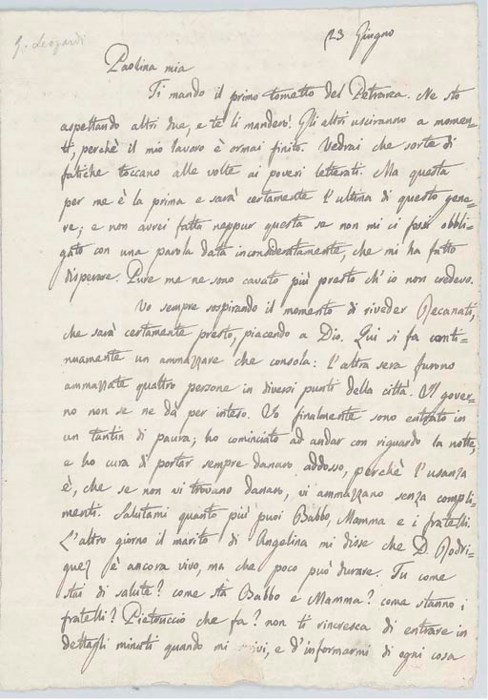 G. Leopardi
23 Giugno
Paolina mia
Ti mando il primo tometto del Petrarca. Ne sto
aspettando altri due, e te li manderò. Gli altri usciranno a momen-
ti, perchè il mio lavoro è ormai finito. Vedrai che sorte di
fatiche toccano alle volte ai poveri letterati. Ma questa
per me è la prima e sarà certamente l'ultima di questo gene-
re; e non avrei fatta neppur questa se non mi ci fossi obbli-
gato con una parola data inconsideratamente, che mi ha fatto
disperare. Pure me ne sono cavato più presto ch'io non credevo.
Vo sempre sospirando il momento di riveder Recanati,
che sarà certamente presto, piacendo a Dio. Qui si fa conti-
nuamente un ammazzare che consola: l'altra sera furono
ammazzate quattro persone in diversi punti della città. Il gover-
no non se ne dà per inteso. Io finalmente sono entrato in
un tantin di paura; ho cominciato ad andar con riguardo la notte,
e ho cura di portar sempre danaro addosso, perchè l'usanza
è, che se non vi trovano danaro, vi ammazzano senza compli-
menti. Salutami quanto più puoi Babbo, Mamma e i fratelli.
L'altro giorno il marito di Angelina mi disse che D. Rodri-
guez è ancora vivo, ma che poco può durare. Tu come
stai di salute? come sta Babbo e Mamma? come stanno i
fratelli? Pietruccio che fa? non ti rincresca di entrare in
dettagli minuti quando mi scrivi, e d'informarmi di ogni cosa